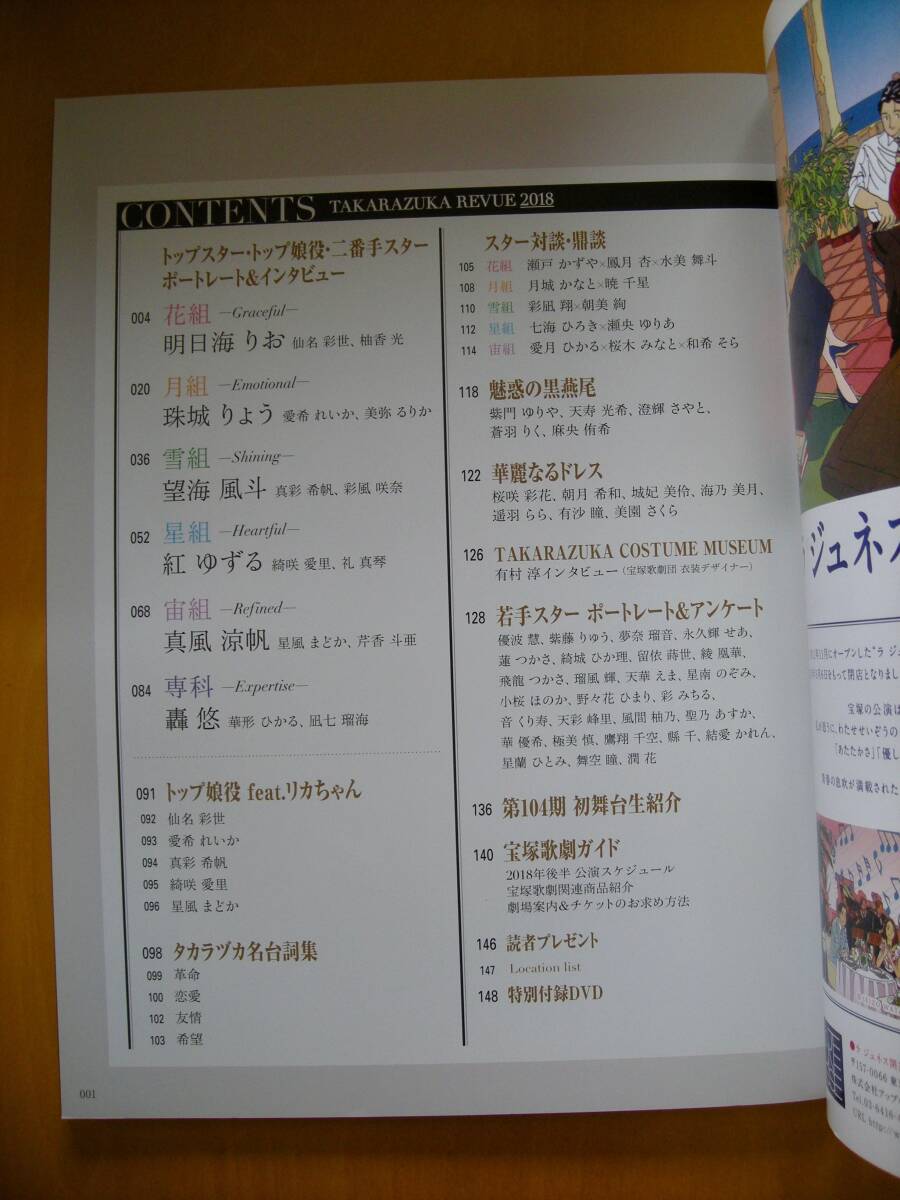 CONTENTS TAKARAZUKA REVUE 2018
トップスター・トップ娘役・二番手スター
ポートレート&インタビュー
004 花組 —Graceful—
明日海 りお 仙名 彩世、柚香 光
020 月組 —Emotional—
珠城 りょう 愛希 れいか、美弥 るりか
036 雪組 —Shining—
望海 風斗 真彩 希帆、彩風 咲奈
052 星組 —Heartful—
紅 ゆずる 綺咲 愛里、礼 真琴
068 宙組 —Refined—
真風 涼帆 星風 まどか、芹香 斗亜
084 専科 —Expertise—
轟 悠 華形 ひかる、凪七 瑠海
091 トップ娘役 feat.リカちゃん
092 仙名 彩世
093 愛希 れいか
094 真彩 希帆
095 綺咲 愛里
096 星風 まどか
098 タカラヅカ名台詞集
099 革命
100 恋愛
102 友情
103 希望
スター対談・鼎談
105 花組 瀬戸 かずや×鳳月 杏×水美 舞斗
108 月組 月城 かなと×暁 千星
110 雪組 彩凪 翔×朝美 絢
112 星組 七海 ひろき×瀬央 ゆりあ
114 宙組 愛月 ひかる×桜木 みなと×和希 そら
118 魅惑の黒燕尾
紫門 ゆりや、天寿 光希、澄輝 さやと、
蒼羽 りく、麻央 侑希
122 華麗なるドレス
桜咲 彩花、朝月 希和、城妃 美伶、海乃 美月、
遥羽 らら、有沙 瞳、美園 さくら
126 TAKARAZUKA COSTUME MUSEUM
有村 淳インタビュー（宝塚歌劇団 衣装デザイナー）
128 若手スター ポートレート&アンケート
優波 慧、紫藤 りゅう、夢奈 瑠音、永久輝 せあ、
蓮 つかさ、綺城 ひか理、留依 蒔世、綾 凰華、
飛龍 つかさ、瑠風 輝、天華 えま、星南 のぞみ、
小桜 ほのか、野々花 ひまり、彩 みちる、
音 くり寿、天彩 峰里、風間 柚乃、聖乃 あすか、
華 優希、極美 慎、鷹翔 千空、縣 千、結愛 かれん、
星蘭 ひとみ、舞空 瞳、潤 花
136 第104期 初舞台生紹介
140 宝塚歌劇ガイド
2018年後半 公演スケジュール
宝塚歌劇関連商品紹介
劇場案内&チケットのお求め方法
146 読者プレゼント
147 Location list
148 特別付録DVD
001
ジュネス
年11月にオープンした“ラ ジュネス
をもって閉店となりまし
宝塚の公演は
わたせせいぞうの
「あたたかさ」「優し
息吹が満載された
●ラ ジュネス
〒157-0066 東
株式会社アップ
Tel.03-6416-
URL http://w